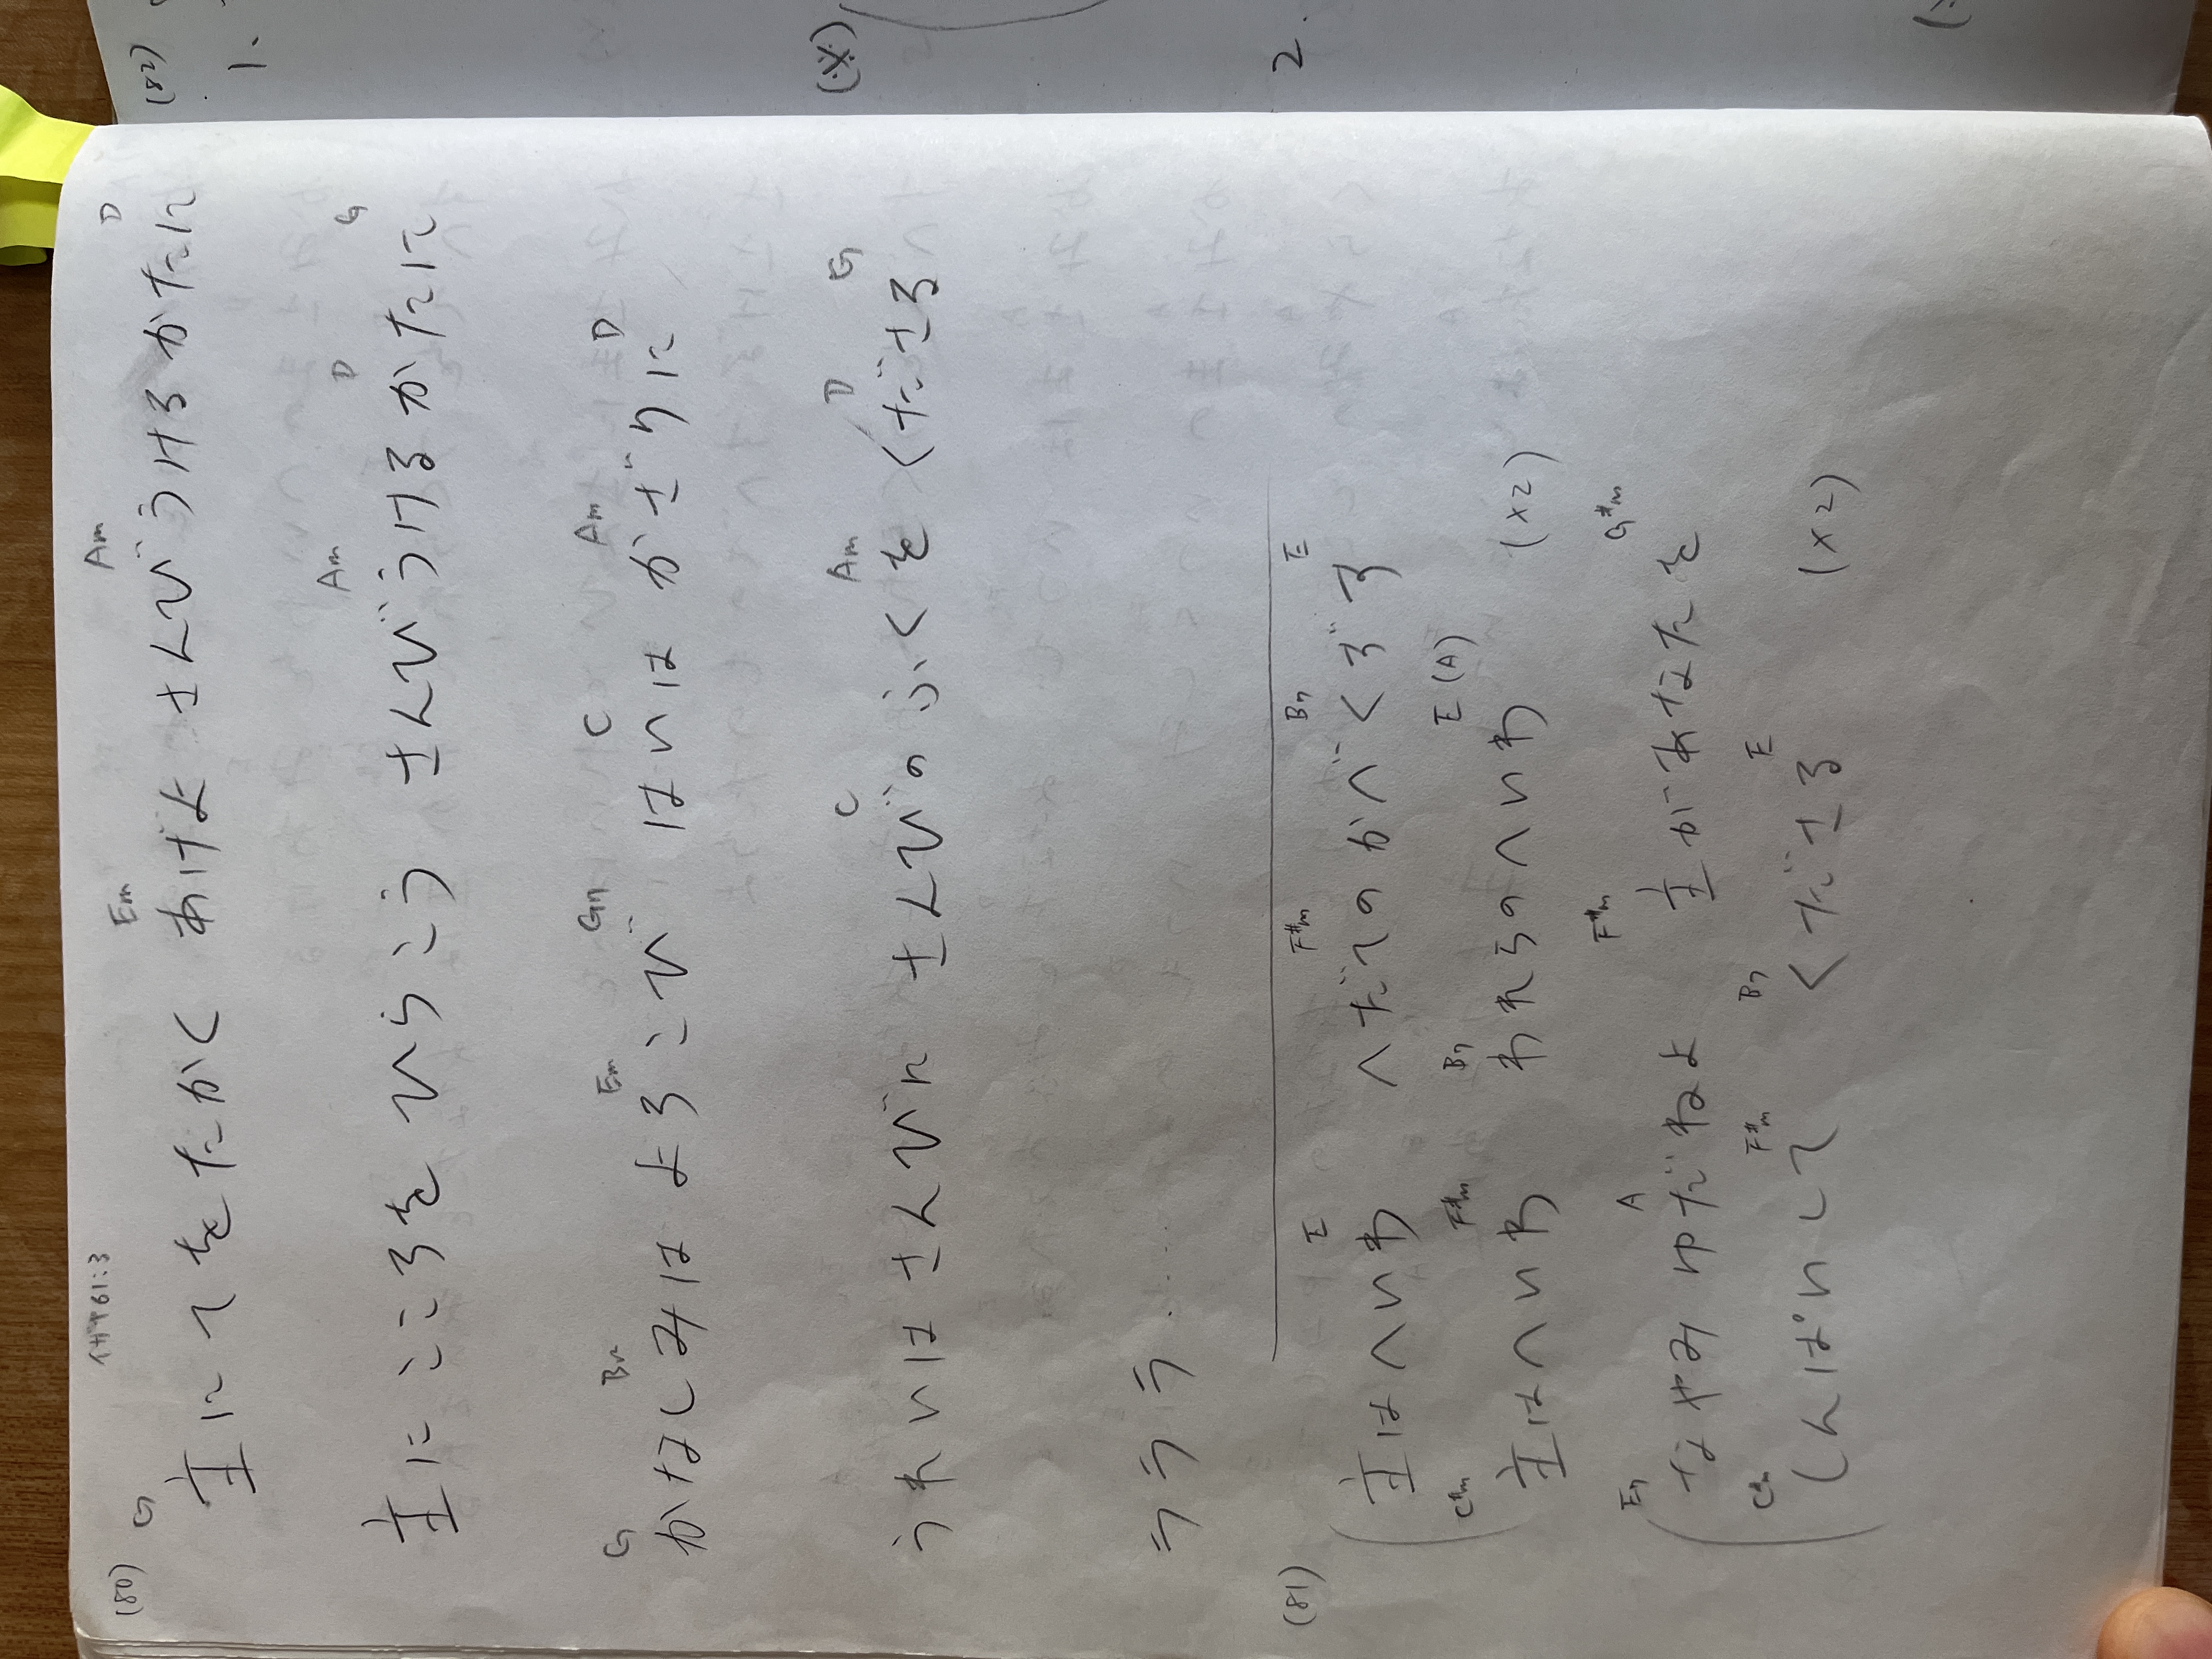 (80) イザヤ61:3
G Em Am D
主にてをたかく あげよ さんびうけるかたに
Am D G
主にこころを ひらこう さんびうけるかたに
G Bm Em G7 C Am D
かなしみは よろこび はいは かざりに
C Am D G
うれいは さんびに さんびのふくを くださる
ラララ.....
(81)
E F#m B7 E
主はへいわ へだてのかべくずす
C#m F#m B7 E (A)
主はへいわ われらのへいわ (x2)
E7 A F#m G#m
なやみ ゆだねよ 主があなたを
C#m F#m B7 E
しんぱいして くださる (x2)
(82)
1.
(※)
2.